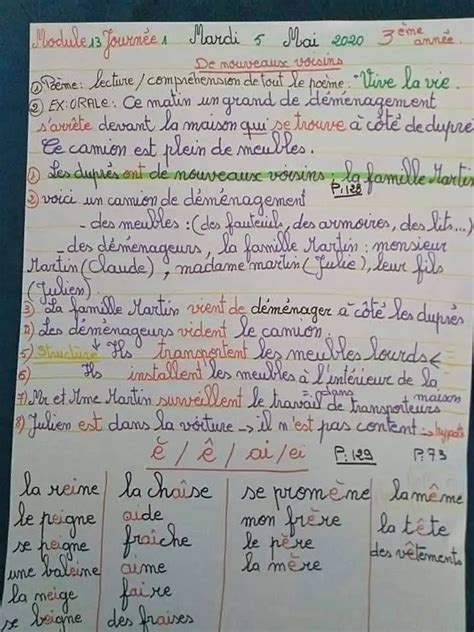 Module 13 Journée 1 Mardi 5 Mai 2020 3ème année.
De nouveaux voisins
① Poème: lecture/compréhension de tout le poème: Vive la vie.
② EX: ORALE: Ce matin un grand de déménagement
s'arrête devant la maison qui se trouve à côté de dupré
Ce camion est plein de meubles.
① Les duprés ont de nouveaux voisins: la famille Martin
P.128
② voici un camion de déménagement
- des meubles: (des fauteuils, des armoires, des lits...)
- des déménageurs, la famille Martin: monsieur
Martin (Claude), madame martin (Julie), leur fils
(Julien).
3) La famille Martin vient de déménager à côté les duprés
4) Les déménageurs vident le camion.
5) Structure ↓ Ils transportent les meubles lourds <
6) Ils installent les meubles à l'intérieur de la
= dans maison
7) Mr et Mme Martin surveillent le travail de transporteurs
8) Julien est dans la voiture → il n'est pas content →
è / ê / ai / ei P.129 P.73
la reine la chaise se promène la même
le peigne aide mon frère la tête
se peigne fraîche le père des vêtements
une baleine aime la mère
la neige faire
se beigne des fraises